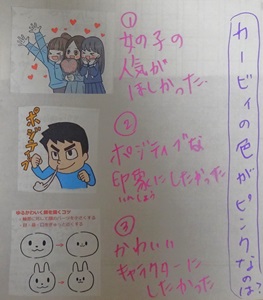 カービィの色がピンクなのは?
①
女の子の
人気が
ほしかった…
ポジティブ
②
ポジティブな
印象に
いんしょう
したかった
ゆるかわいく顔を描くコツ
③
かわいい
キャラクターに
したかった